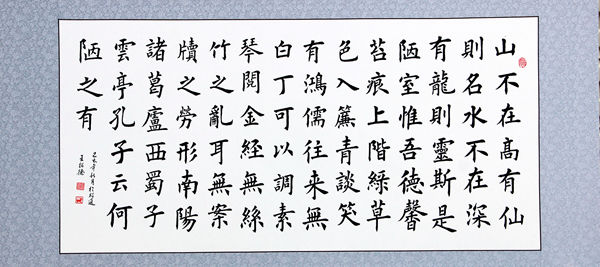 山不在高有仙
則名水不在深
有龍則靈斯是
陋室惟吾德馨
苔痕上階綠草
色入簾青談笑
有鴻儒往来無
白丁可以調素
琴閱金經無絲
竹之亂耳無案
牘之勞形南陽
諸葛廬西蜀子
雲亭孔子云何
陋之有